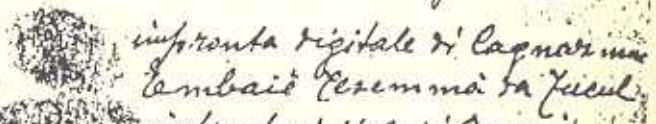 impronta digitale di Cagnazmac
Tembaié Tesemmà da Tucul